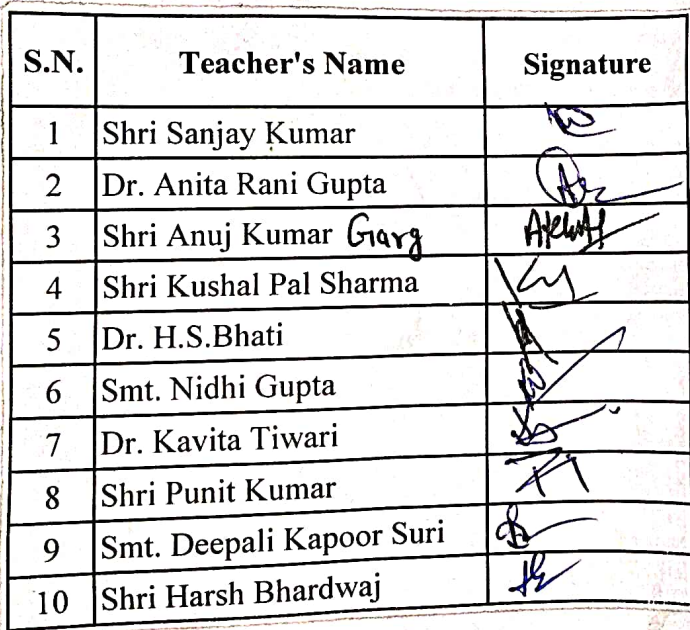 S.N. Teacher's Name Signature
1 Shri Sanjay Kumar
2 Dr. Anita Rani Gupta
3 Shri Anuj Kumar Garg
4 Shri Kushal Pal Sharma
5 Dr. H.S.Bhati
6 Smt. Nidhi Gupta
7 Dr. Kavita Tiwari
8 Shri Punit Kumar
9 Smt. Deepali Kapoor Suri
10 Shri Harsh Bhardwaj